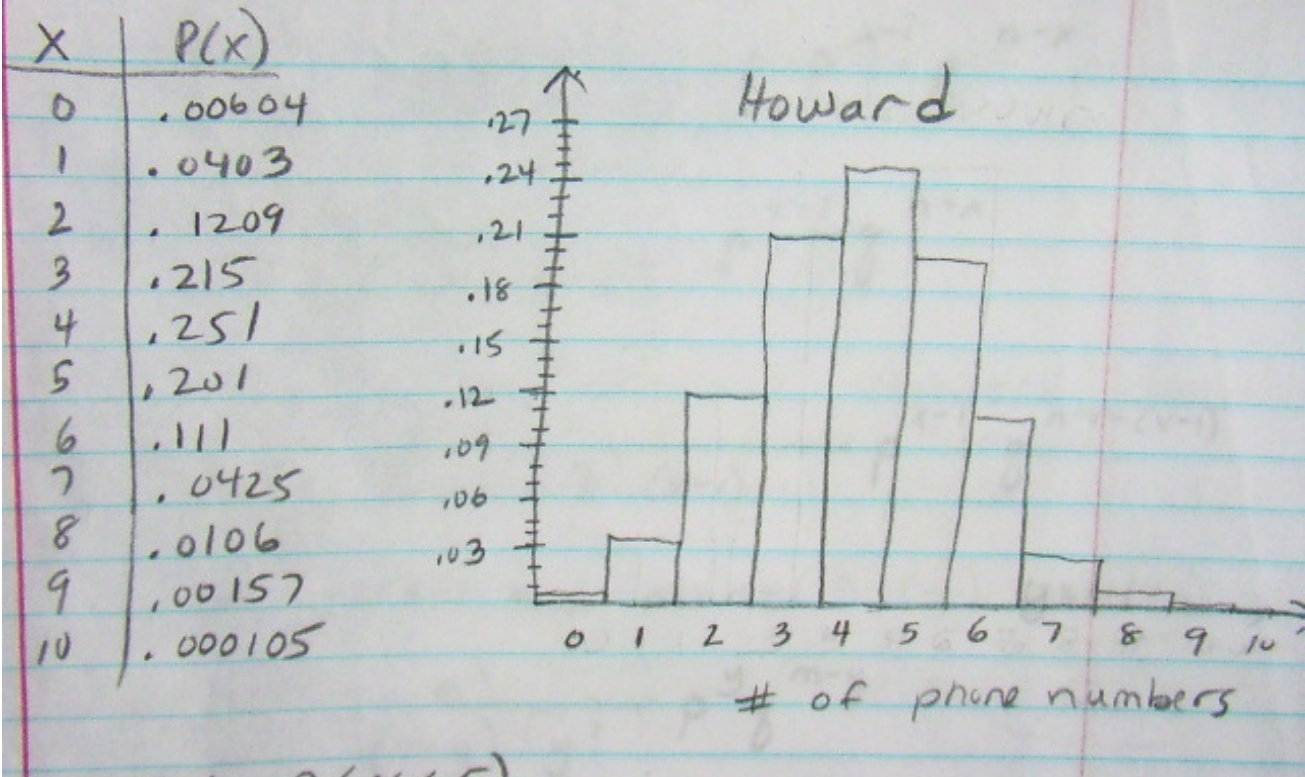 X P(x)
0 .00604
1 .0403
2 .1209
3 .215
4 .251
5 .201
6 .111
7 .0425
8 .0106
9 .00157
10 .000105
Howard
.27
.24
.21
.18
.15
.12
.09
.06
.03
0 1 2 3 4 5 6 7 8 9 10
# of phone numbers